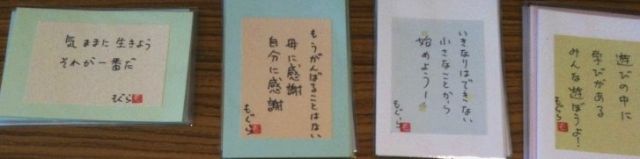 気ままに生きよう
それが一番だ
もぐら
もうがんばることはない
母に感謝
自分に感謝
もぐら
いきなりはできない
小さなことから
始めよう！
もぐら
遊びの中に
学びがある
みんな遊ぼうよ！
もぐら